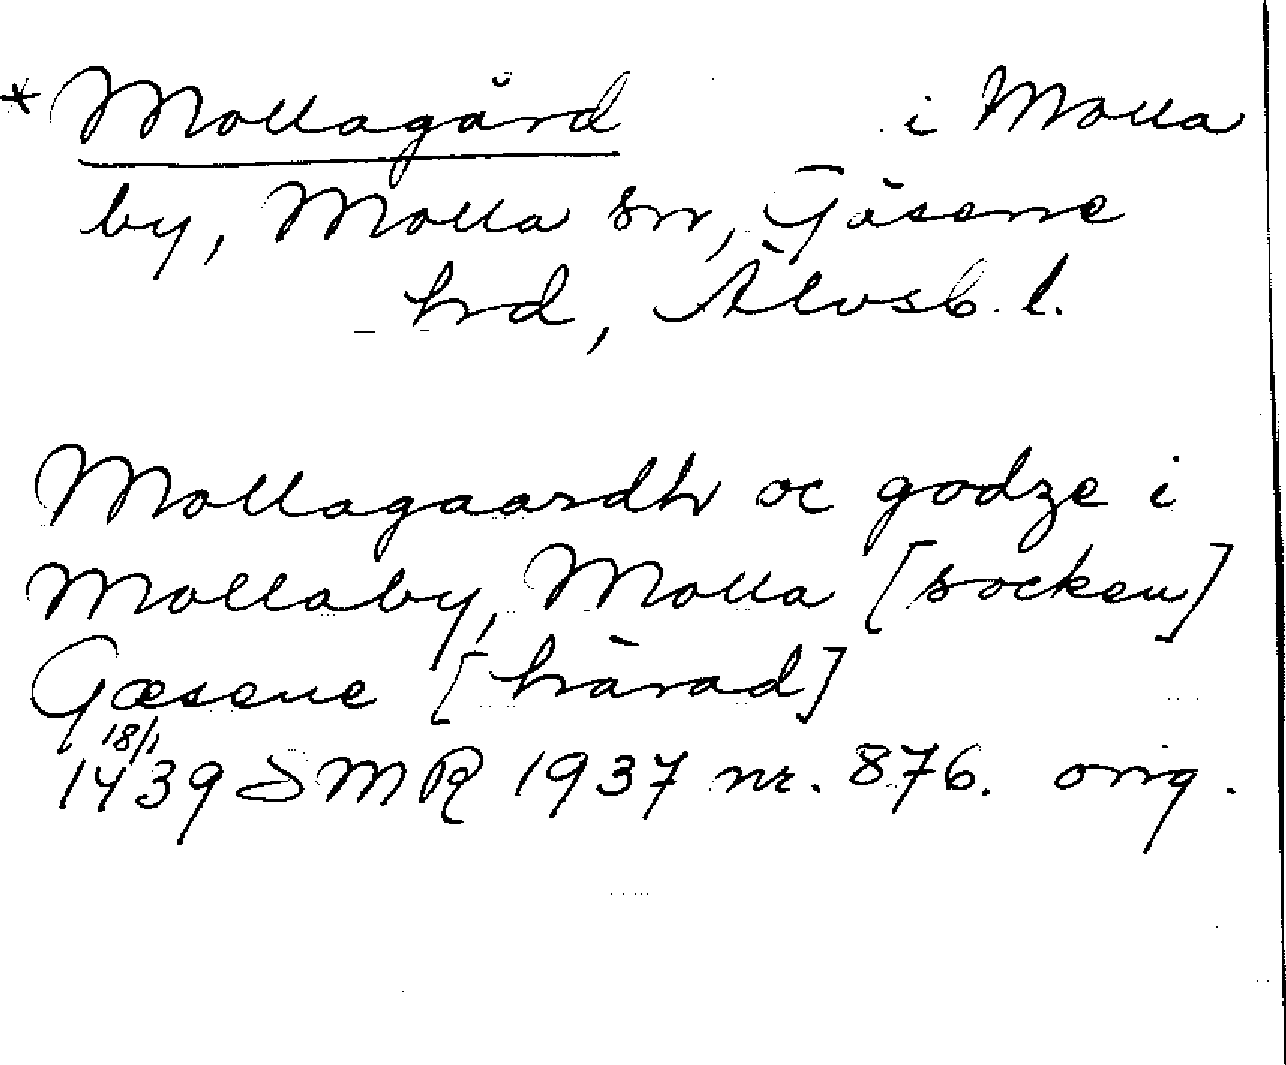 * Mollagård i Molla
by, Molla sn, Gäsene
hrd, Älvsb. l.
Mollagaardh oc godze i
Mollaby, Molla [socken]
Gæsene [härad]
18/1
1439 SMR 1937 nr. 876. orig.